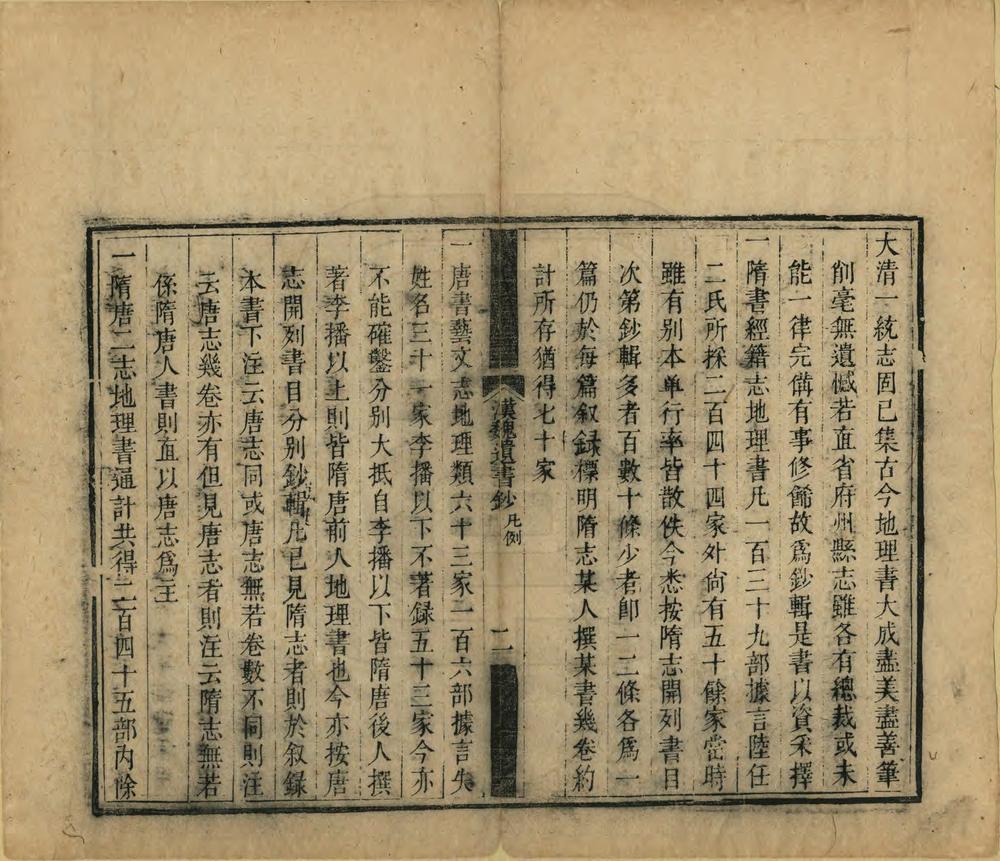 大清一統志固已集古今地理書大成盡美盡善筆
削毫無遺憾若直省府州縣志雖各有總裁或未
能一律完備有事修飾故爲鈔輯是書以資采擇
一隋書經籍志地理書凡一百三十九部據言陸任
二氏所採二百四十四家外尙有五十餘家當時
雖有别本单行率皆散佚今悉按隋志開列書目
次第鈔輯多者百數十條少者卽一二條各爲一
篇仍於每篇叙録標明隋志某人撰某書幾卷約
計所存猶得七十家
漢魏遺書鈔 凡例 二
一唐書藝文志地理類六十三家二百六部據言失
姓名三十一家李播以下不著録五十三家今亦
不能確鑿分别大抵自李播以下皆隋唐後人撰
著李播以上則皆隋唐前人地理書也今亦按唐
志開列書目分别鈔輯凡已見隋志者則於叙録
本書下注云唐志同或唐志無若卷數不同則注
云唐志幾卷亦有但見唐志者則注云隋志無若
係隋唐人書則直以唐志爲主
一隋唐二志地理書通計共得二百四十五部内除